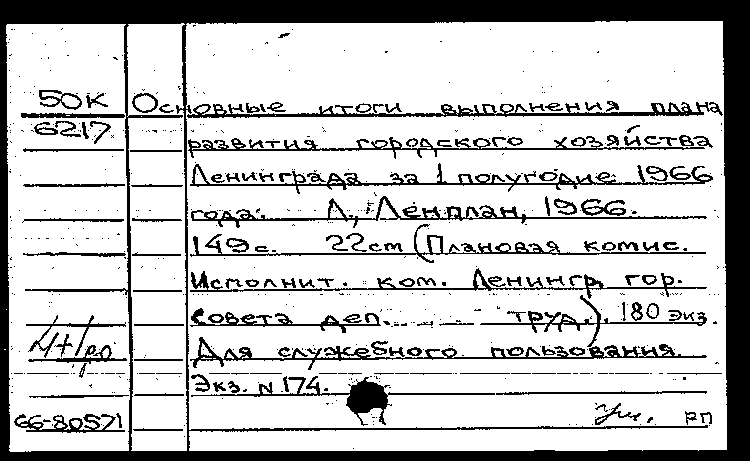 50К Основные итоги выполнения плана
6217 развития городского хозяйства
Ленинграда за 1 полугодие 1966
года. Л., Ленплан, 1966.
149с. 22cm (Плановая комис.
Исполнит. ком. Ленингр. гор.
совета деп. труд.). 180 экз.
Для служебного пользования.
Экз. N 174.
66-80571 РП